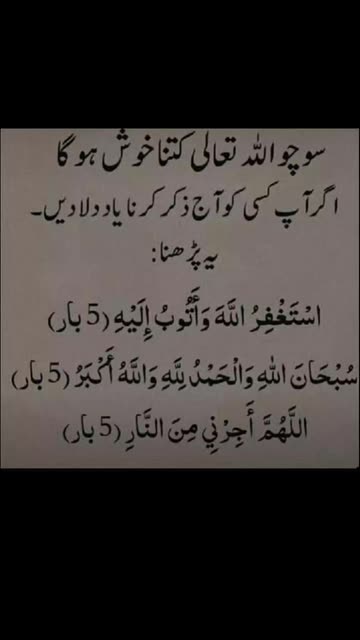 سوچو اللہ تعالیٰ کتنا خوش ہو گا
اگر آپ کسی کو آج ذکر کرنا یاد دلا دیں۔
یہ پڑھنا:
اسْتَغْفِرُ اللَّهَ وَأَتُوبُ إِلَيْهِ (5 بار)
سُبْحَانَ اللهِ وَالْحَمْدُ لِلَّهِ وَاللَّهُ أَكْبَرُ (5 بار)
اللَّهُمَّ أَجِرْنِي مِنَ النَّارِ (5 بار)